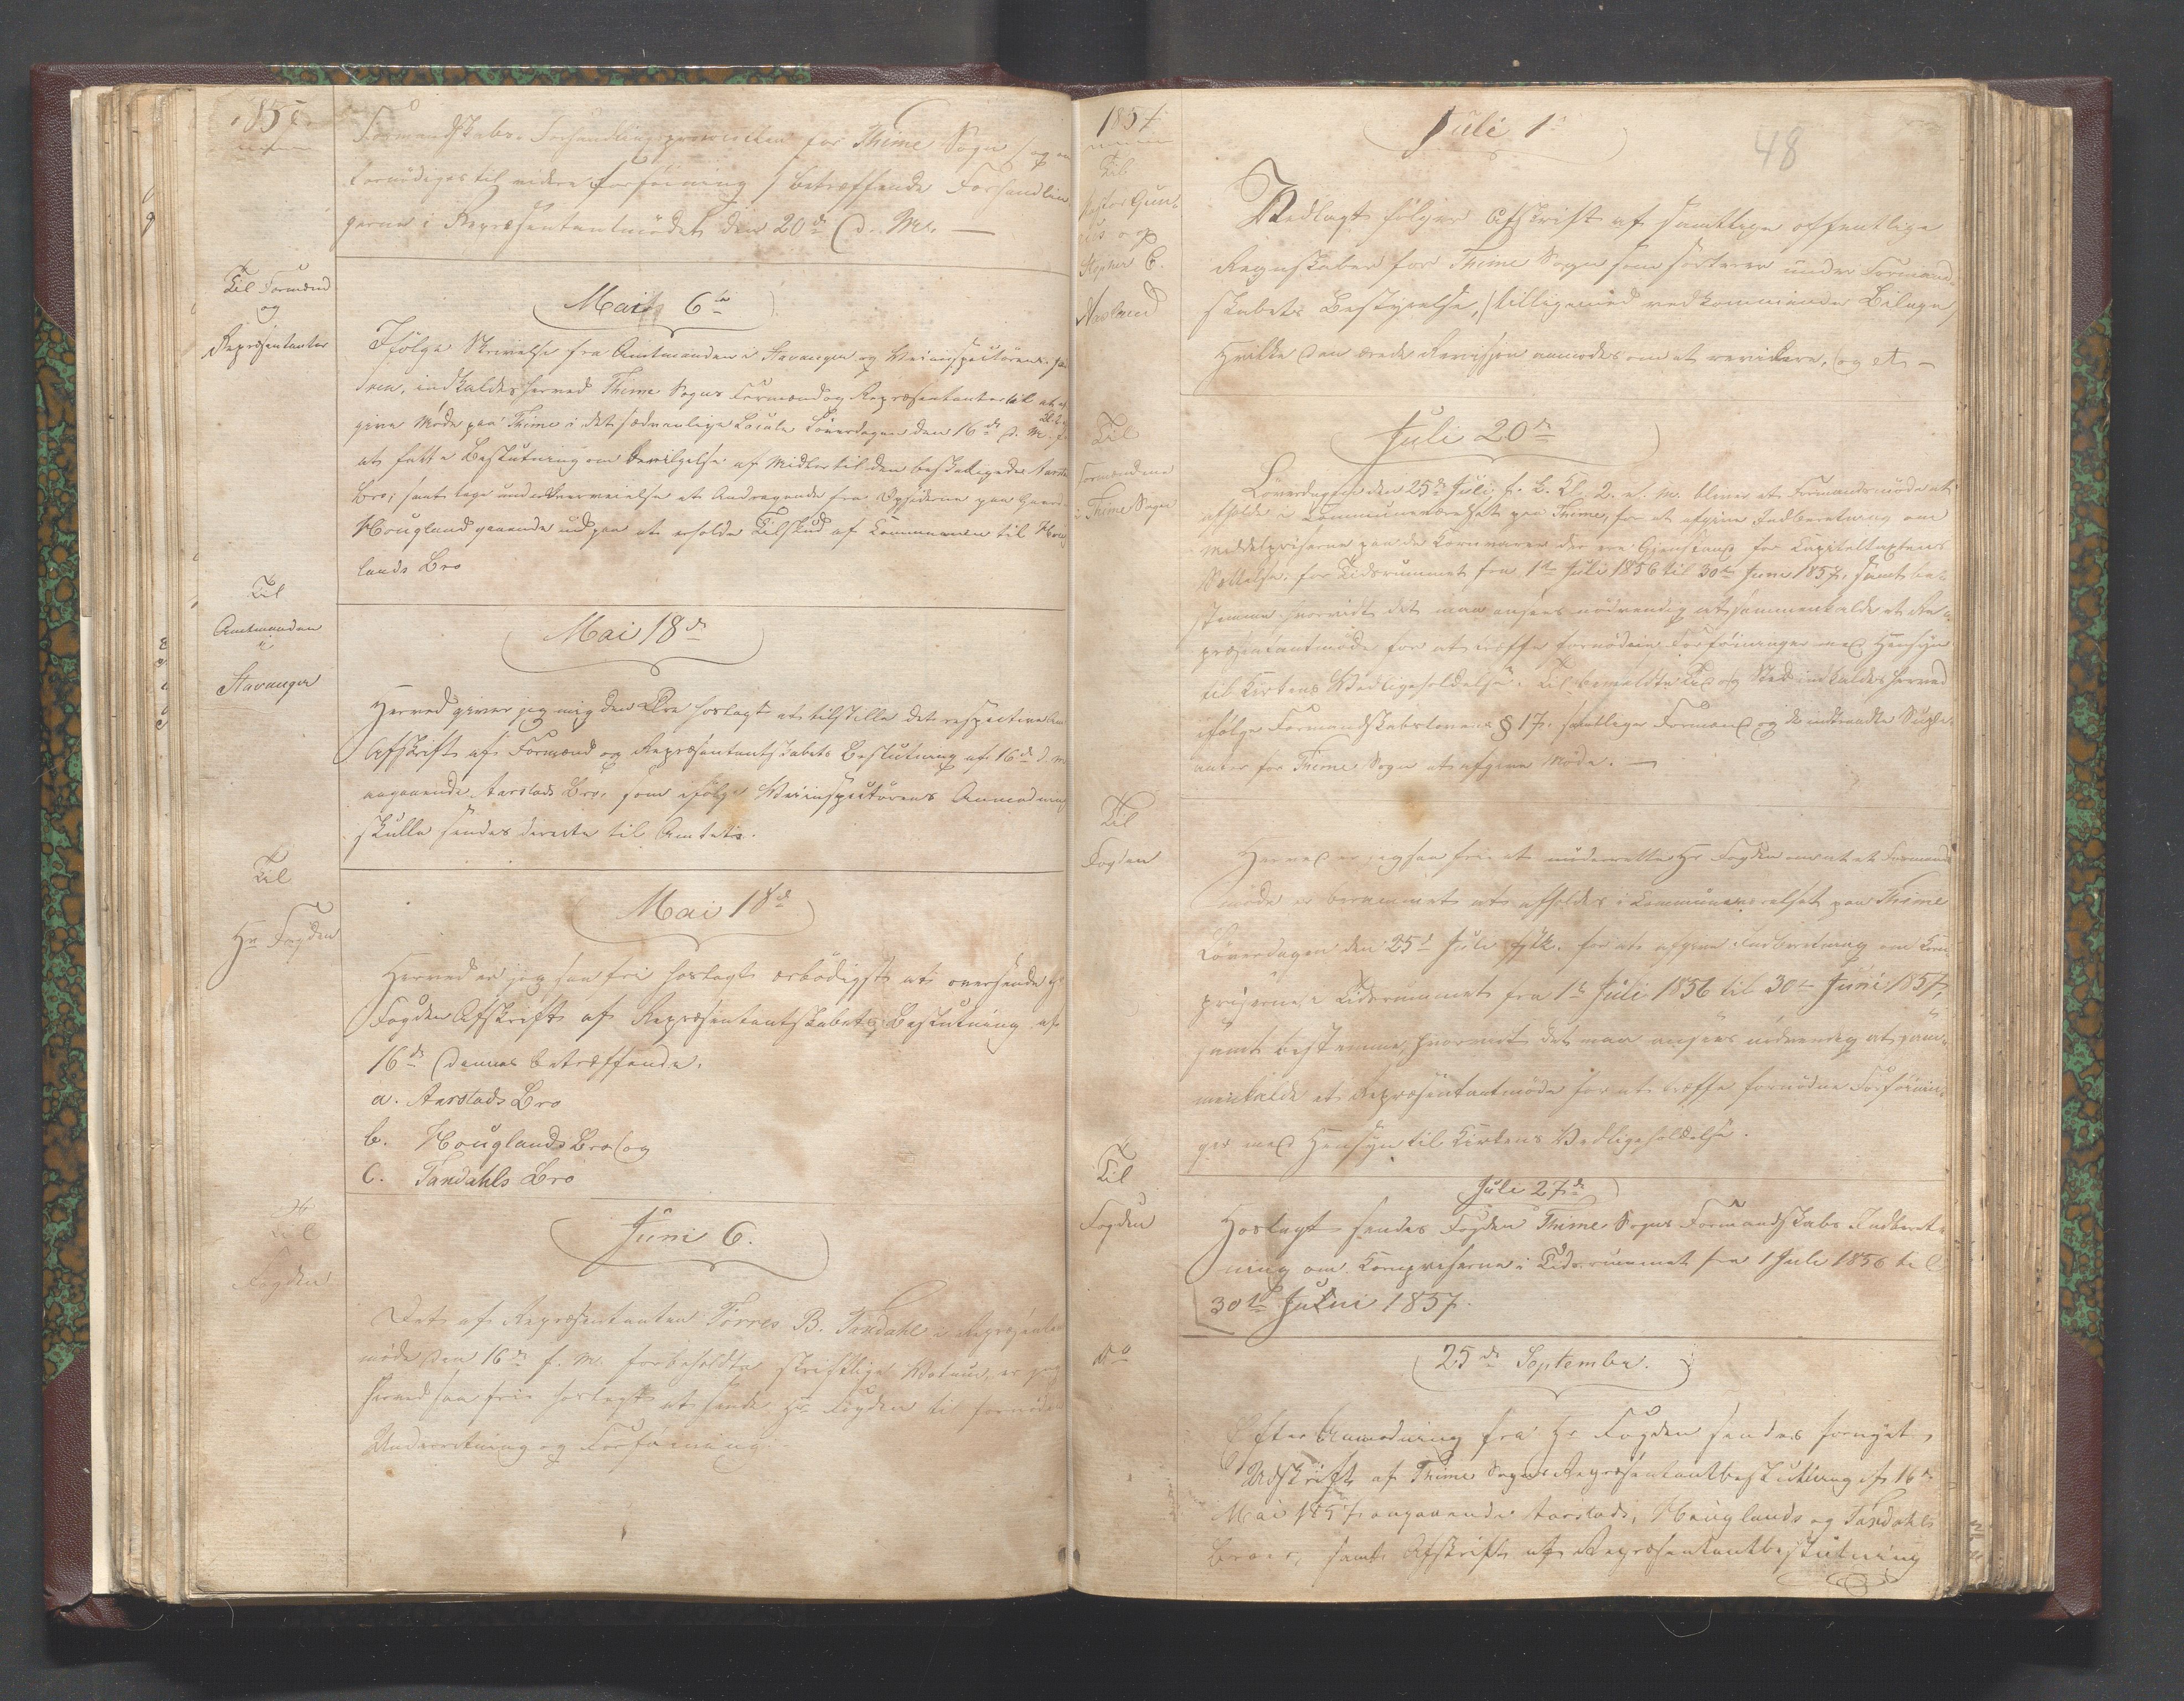 1857
Formandskabs Forhandlingsprotocollen for Thime Sogn (og om
fornödiges til videre Forföining) betræffende Forhandlin
gerne i Repræsentantmödet den 20de d. M. —
Til Formænd
og
Repræsentanter
Mai 6te
Ifölge Skrivelse fra Amtmanden i Stavanger og Veiinspecteuren
indkaldes herved Thime Sogns Formænd og Repræsentanter til at af
give Möde paa Thime i det sædvanlige Locale Löverdagen den 16de d. M.
at fatte Beslutning om Bevilgelse af Midler til den beskadigede Aarstads
Bro; samt tage under Overveielse et Andragende fra Opsidderne paa Gaard
Houglund gaaende ud paa at erholde Tilskud af Communen til Houg
lands Bro
Til
Amtmanden
i
Stavanger
Mai 18de
Herved giver jeg mig den Ære hoslagt at tilstille det respective Amt
Afskrift af Formænd og Repræsentantskabets Beslutning af 16de d. M.
angaaende Aarstads Bro, som ifölge Veiinspecteurens Anmodning
skulle sendes directe til Amtet.
Til
Hr Fogden
Mai 18de
Herved er jeg saa fri hoslagt ærbödigst at oversende Hr
Fogden Afskrift af Repræsentantskabets Beslutning af
16de dennes betræffende.
a. Aarstads Bro
b. Houglands Bro og
c. Tandahls Bro
Til
Fogden
Juni 6.
Det af Repræsentanten Törres B. Tandahl i Repræsentant
möde den 16de f. M. forbeholdte skriftlige Votum, er jeg
herved saa fri hoslagt at sende Hr Fogden til fornöden
Underretning og Forföining.
1857
48
Til
og
Stopher C.
Juli 1ste
Vedlagt fölger Afskrift af samtlige offentlige
Regnskaber for Thime Sogn som sorterer under Formand
skabets Bestyrelse, (tilligemed vedkommende Bilage)
Hvilke den ærede Revission anmodes om at revidere, og et —
Til
Formændene
i Thime Sogn
Juli 20de
Löverdagen den 25de Juli f. k. Kl. 2. e. M. bliver et Formandsmöde at
afholde i Communeværelset paa Thime, for at afgive Indberetning om
Middelpriserne paa de Kornvarer der ere Gjenstand for Capiteltaxtens
Sættelse for Tidsrummet fra 1te Juli 1856 til 30te Juni 1857, samt be-
stemme, hvorvidt det maa ansees nödvendig at sammenkalde et Re-
præsentantmöde for at træffe fornödne Forföininger med Hensyn
til Kirkens Vedligeholdelse. Til bemeldte Tid og Sted indkaldes herved
ifölge Formandskabslovens § 17. samtlige Formænd og de indtraadte Supple-
anter for Thime Sogn at afgive Möde. —
Til
Fogden
Herved er jeg saa fri at underrette Hr Fogden om at et Formands
möde er berammet at afholdes i Communeværelset paa Thime
Löverdagen den 25de Juli f. k. for at afgive Indberetning om Korn-
priserne i Tidsrummet fra 1te Juli 1856 til 30te Juni 1857,
samt bestemme, hvorvidt det maa ansees nödvendig at sam-
menkalde et Repræsentantmöde for at træffe fornödne Forföinin-
ger med Hensyn til Kirkens Vedligeholdelse.
Til
Fogden
Juli 27de
Hoslagt sendes Fogden Thime Sogns Formandskabs Indberet-
ning om Kornpriserne i Tidsrummet fra 1 Juli 1856 til
30te Juni 1857.
Do
25de September.
Efter Anmodning fra Hr Fogden sendes fornyet
Udskrift af Thime Sogns Repræsentantbeslutning af 16de
Mai 1857 angaaende Aarstads, Houglands og Tandahls
Broer, samt Afskrift af Repræsentantbeslutning